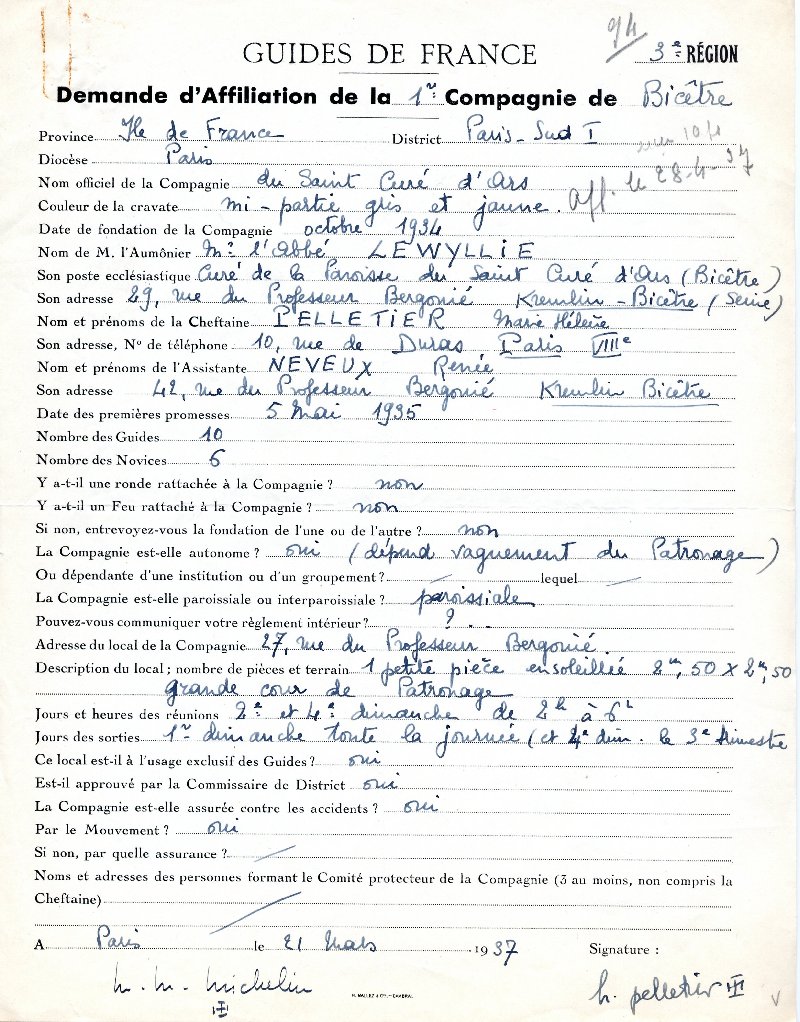 94
GUIDES DE FRANCE
3e RÉGION
Demande d'Affiliation de la 1re Compagnie de Bicêtre
Province Ile de France District Paris-Sud I
Diocèse Paris
10/4
Aff. le 28-4-37
Nom officiel de la Compagnie du Saint Curé d'Ars
Couleur de la cravate mi-partie gris et jaune.
Date de fondation de la Compagnie octobre 1934
Nom de M. l'Aumônier Mr l'Abbé LEWYLLIE
Son poste ecclésiastique Curé de la Paroisse du Saint Curé d'Ars (Bicêtre)
Son adresse 29, rue du Professeur Bergonié Kremlin-Bicêtre (Seine)
Nom et prénoms de la Cheftaine PELLETIER Marie Hélène
Son adresse, No de téléphone 10, rue de Duras Paris VIIIe
Nom et prénoms de l'Assistante NEVEUX Renée
Son adresse 42, rue du Professeur Bergonié Kremlin Bicêtre
Date des premières promesses 5 Mai 1935
Nombre des Guides 10
Nombre des Novices 6
Y a-t-il une ronde rattachée à la Compagnie ? non
Y a-t-il un Feu rattaché à la Compagnie ? non
Si non, entrevoyez-vous la fondation de l'une ou de l'autre ? non
La Compagnie est-elle autonome ? oui (dépend vaguement du Patronage)
Ou dépendante d'une institution ou d'un groupement ? lequel
La Compagnie est-elle paroissiale ou interparoissiale ? paroissiale
Pouvez-vous communiquer votre règlement intérieur ? ? . .
Adresse du local de la Compagnie 27, rue du Professeur Bergonié.
Description du local ; nombre de pièces et terrain 1 petite pièce ensoleillée 2m,50 X 2m,50
grande cour de Patronage
Jours et heures des réunions 2e et 4e dimanche de 2h à 6h
Jours des sorties 1er dimanche toute la journée (et 4e dim. le 3e trimestre
Ce local est-il à l'usage exclusif des Guides ? oui
Est-il approuvé par la Commissaire de District oui
La Compagnie est-elle assurée contre les accidents ? oui
Par le Mouvement ? oui
Si non, par quelle assurance ?
Noms et adresses des personnes formant le Comité protecteur de la Compagnie (3 au moins, non compris la
Cheftaine)
A Paris le 21 Mars 1937 Signature :
h. m. michelin
H. MALLEZ & Cie - CAMBRAI.
h. pelletier